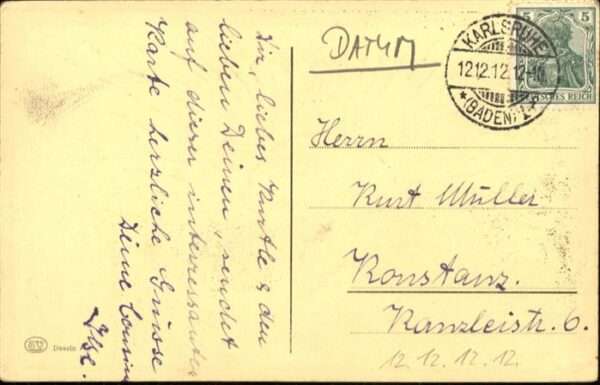 Dir, liebes Kurtle & den
lieben Deinen, sendet
auf dieser interessanten
Karte herzliche Grüsse
Deine Cousine
Ilse.
DATUM
KARLSRUHE
12.12.12.12-1
* (BADEN) 1.
5
5
DEUTSCHES REICH
Herrn
Kurt Müller
Konstanz.
Kanzleistr. 6.
12. 12. 12. 12.